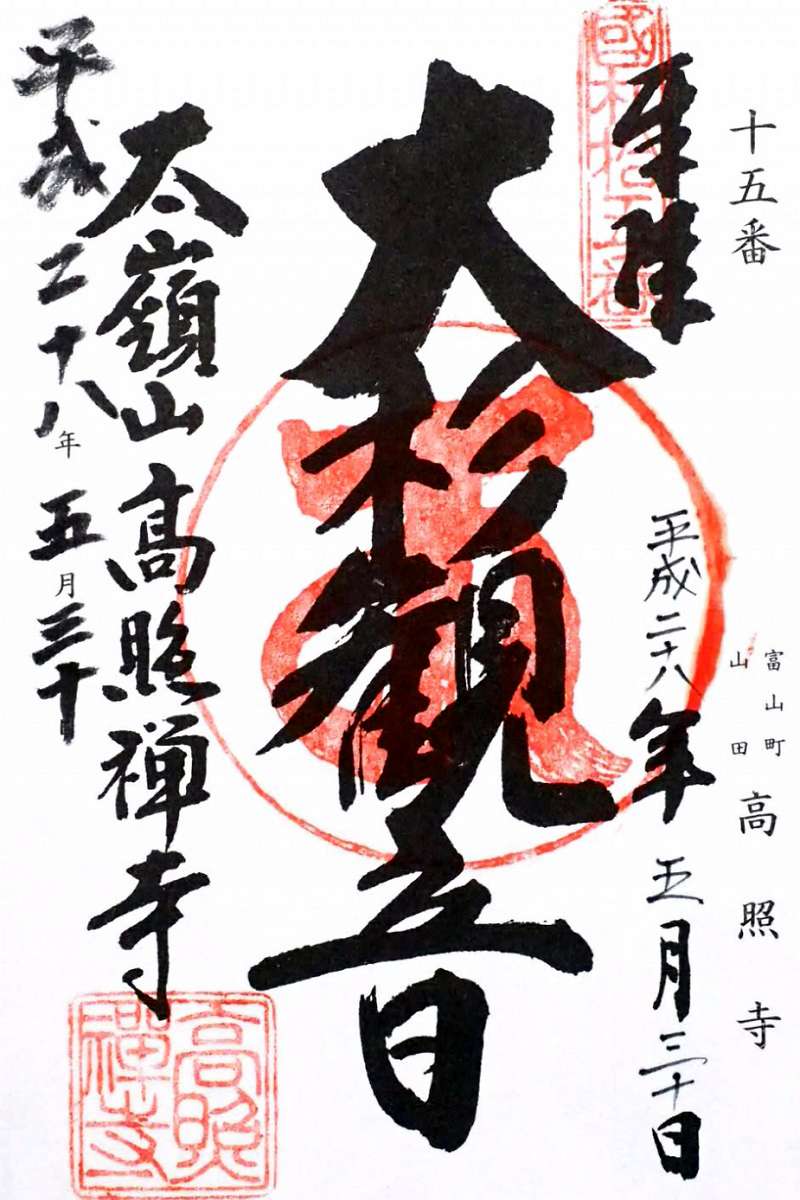 十五番
富山町
山田
高照寺
奉拝
國札拾五番
平成二十八年五月三十日
大杉観音
太嶺山高照禅寺
高照禪寺
平成二十八年五月三十